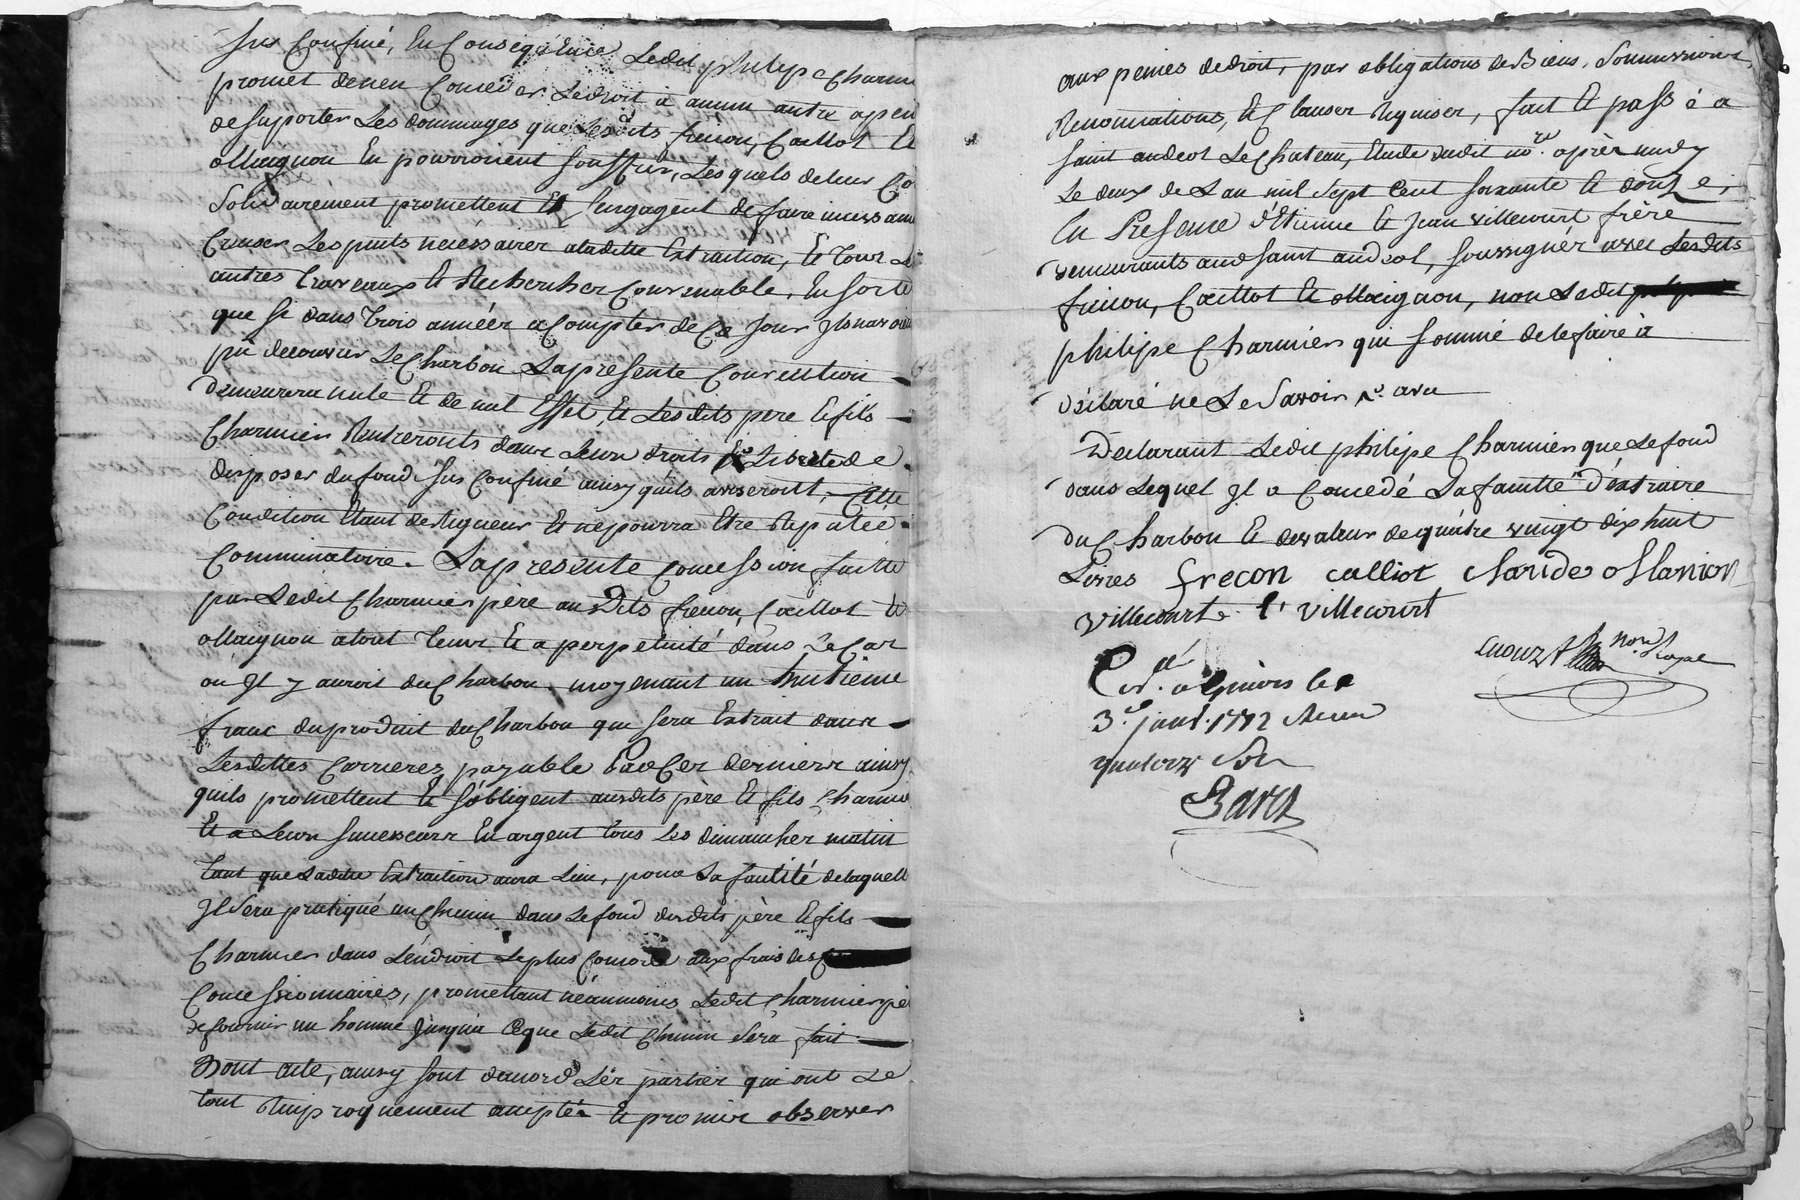 sus Confiné, En Conséquence Ledit philipe Charm
promet de nen Conceder Le droit a aucun autre a pein
de suporter Les dommages que Lesdits frecon, Caillot Et
Macignon En pourroient souffrir, Lesquels de leur Co
solidairement promettent Et sengagent de faire incessam
Creuser Les puits necéssaires a laditte Extraction, Et Tous Les
autres Traveaux Et Recherches Convenable, En sorte
que si dans Trois années a Compter de Ce Jour Ils navoien
pû decouvrir Le Charbon Lapresente Convention
Demeurera nule Et de nul Effet, Et Lesdits pere Et fils
Charmier Rentreronts dans Leurs droits Et Liberté de
disposer du fond sus Confiné ainsy quils aviseront, Cette
Condition Etant de Rigueur Et ne pourra Etre Reputée
Comminatoire. Lapresente Concession faitte
par Ledit Charmier père auxDits frecon, Caillot Et
Macignon a tout Tems Et a perpetuité dans Le Cas
ou Il y auroit du Charbon, moyenant un huitieme
franc du produit du Charbon qui sera Extrait dans
Lesdittes Carrieres, payable Par Ces derniers ainsy
quils promettent Et s'obligent auxdits père Et fils Charmie
Et a Leurs successeurs En argent tous Les dimanches matin
Tant que Laditte Extraction aura Lieu, pour La facilité de laquell
Il sera pratiqué un Chemin dans Le fond desdits père Et fils
Charmier dans L'endroit Le plus Comode aux frais des
Concessionnaires, promettant néanmoins Ledit Charmier pè
de fournir un homme Jusqu'a Ceque Ledit Chemin sera fait
Dont acte, ainsy sont d'acord Les parties qui ont Le
tout Reciproquement accepté Et promis observer
aux peines de droit, par obligations de Biens, Soumissions,
Renonciations, Et Clauses Requises, fait Et passé a
saint andeol Le Chateau, Etude dudit no.re après midy
Le deux de L'an mil sept Cent soixante Et douze,
En Presence d'Etienne Et Jean villecourt frère
demeurants aud saint andeol, soussignés avec Lesdits
frecon, Caillot Et Macignon, non Ledit
philipe Charmier qui sommé de le faire à
déclaré ne Le Savoir
Déclarant Ledit philipe Charmier que Le fond
dans Lequel Il a Concedé La faculté d'éxtraire
du Charbon Et de valeur de quatre vingt dix huit
Livres frecon calliot claude Manion
villecourt J villecourt
no.re Royal
C.lé a Givors le
3.e janv. 1772 Recu
quatorze Sols